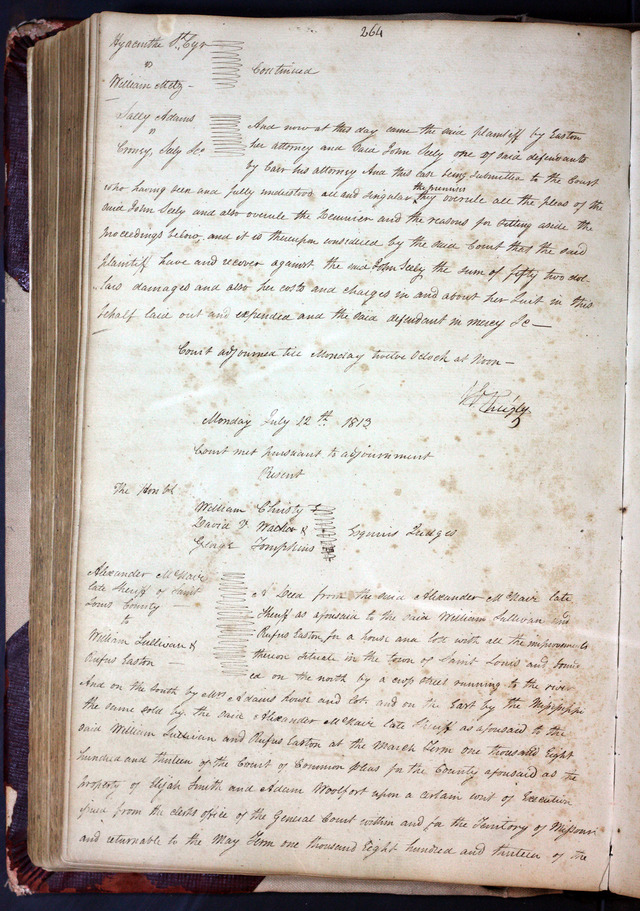 264
Hyacinthe St. Cyr
"
William Metz -
Continued
Sally Adams
"
Seely &c
And now at this day came the said plaintiff by Easton
her attorney and said John Seely one of said defendants
by Carr his attorney And this case being submitted to the Court
who having seen and fully understood all and singular the premises they overule all the pleas of the
said John Seely and also overule the Demurrer and the reasons for setting aside the
proceedings below, and it is thereupon considered by the said Court that the said
plaintiff have and recover against the said John Seely the sum of fifty two dol
lars damages and also her costs and charges in and about her suit in this
behalf laid out and expended and the said defendant in mercy &c —
Court adjourned till Monday twelve Oclock at Noon —
Wm Christy
Monday July 12th 1813
Court met pursuant to adjournment
Present
The Honbl
William Christy &
David V Walker &
George Tompkins
Esquires Judges
Alexander McNair
late Sheriff of Saint
Louis County —
to
William Sullivan &
Rufus Easton —
A Deed from the said Alexander McNair late
Sheriff as aforesaid to the said William Sullivan and
Rufus Easton for a house and lott with all the improvements
thereon situate in the town of Saint Louis and bound
ed on the north by a cross street running to the river
And on the South by Mrs Adams house and lot and on the East by the Mississippi
the same sold by the said Alexander McNair late Sheriff as aforesaid to the
said William Sullivan and Rufus Easton at the March term one thousand Eight
hundred and thirteen of the Court of Common pleas for the County aforesaid as the
property of Elijah Smith and Adam Woolfort upon a certain writ of Execution
issued from the clerks office of the General Court within and for the Territory of Missouri
and returnable to the May Term one thousand Eight hundred and thirteen of the